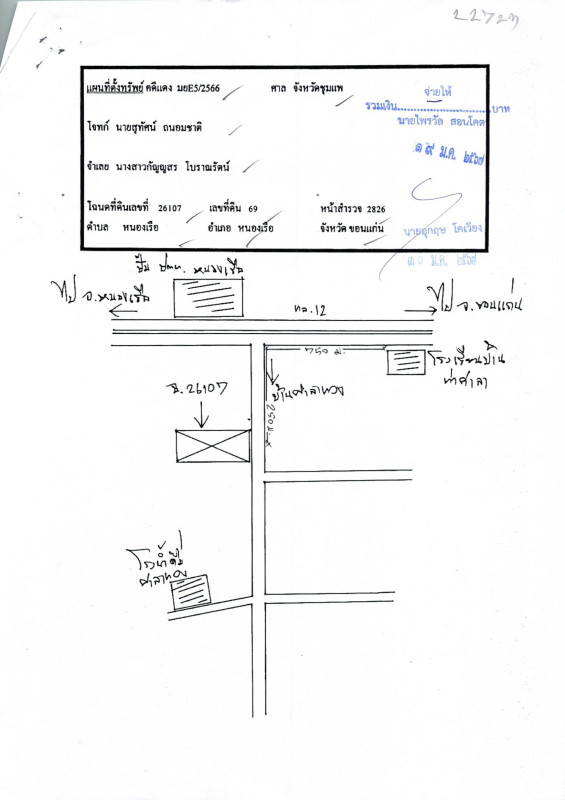 22723
แผนที่ตั้งทรัพย์ คดีแดง มยE5/2566 ศาล จังหวัดชุมแพ
จ่ายให้
รวมเงิน..............................บาท
นายไพรวัล สอนโคตร
โจทก์ นายสุทัศน์ ถนอมชาติ
๑๙ ม.ค. ๒๕๖๗
จำเลย นางสาวกัญญสร โบราณรัตน์
โฉนดที่ดินเลขที่ 26107 เลขที่ดิน 69 หน้าสำรวจ 2826
ตำบล หนองเรือ อำเภอ หนองเรือ จังหวัด ขอนแก่น
๓๐ ม.ค. ๒๕๖๗
ปั๊ม ปตท. หนองเรือ
ไป อ.หนองเรือ
ทล.12
ไป จ.ขอนแก่น
750 ม.
โรงเรียนบ้าน
ท่าศาลา
ฉ.26107
บ้านศาลาทอง
โรงน้ำดื่ม
ศาลาทอง